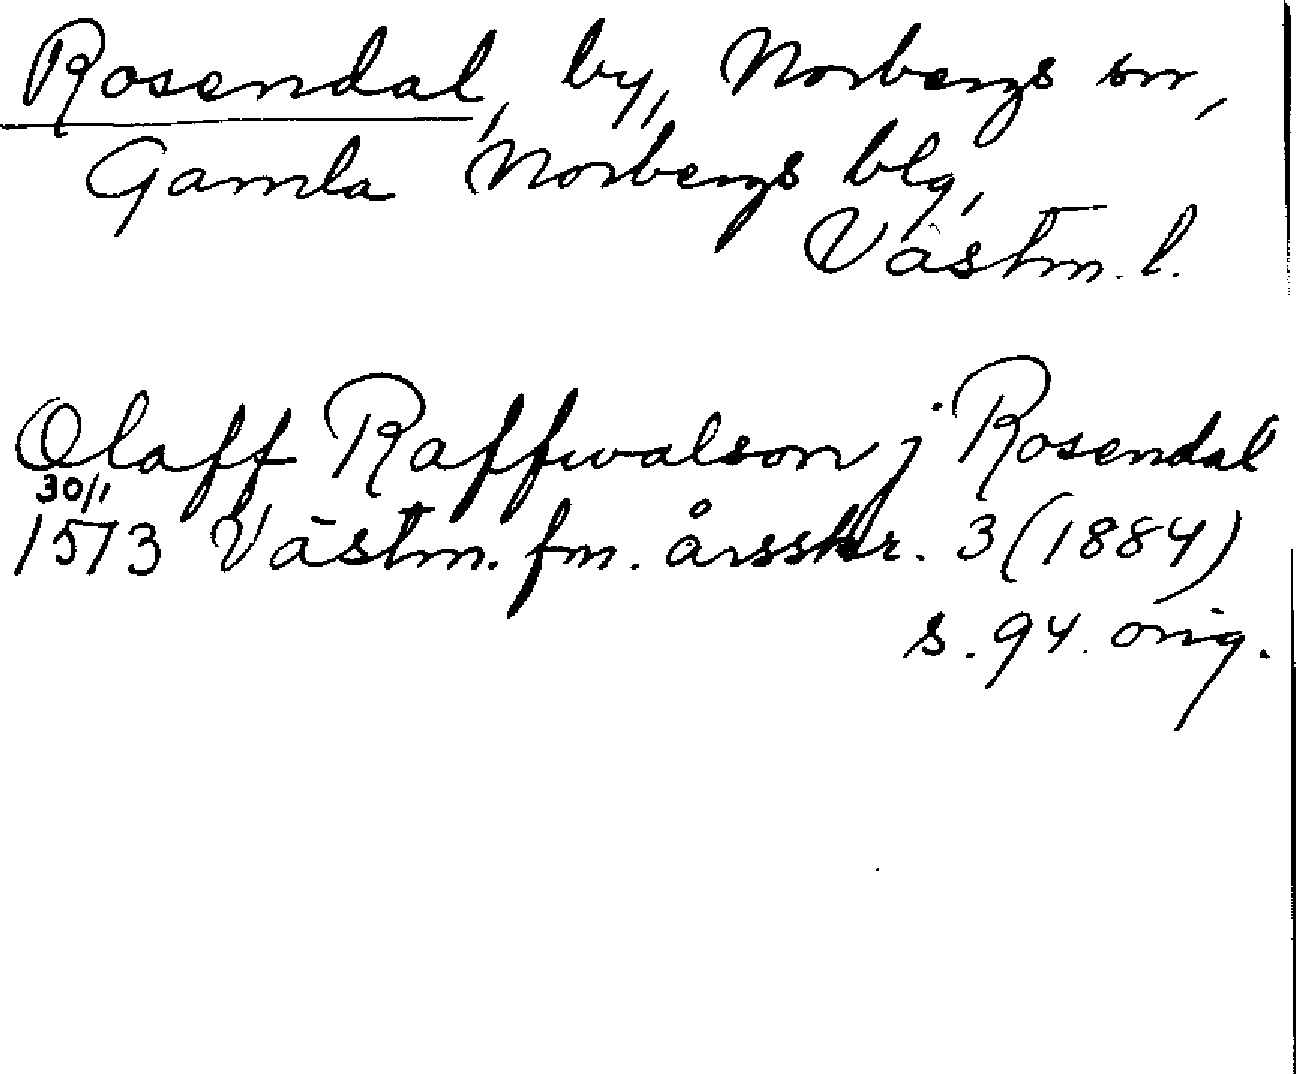 Rosendal, by, Norbergs sn,
Gamla Norbergs blg,
Västm. l.
Olaff Raffwalson j Rosendal
30/1
1573 Västm. fm. årsskr. 3 (1884)
s. 94. orig.